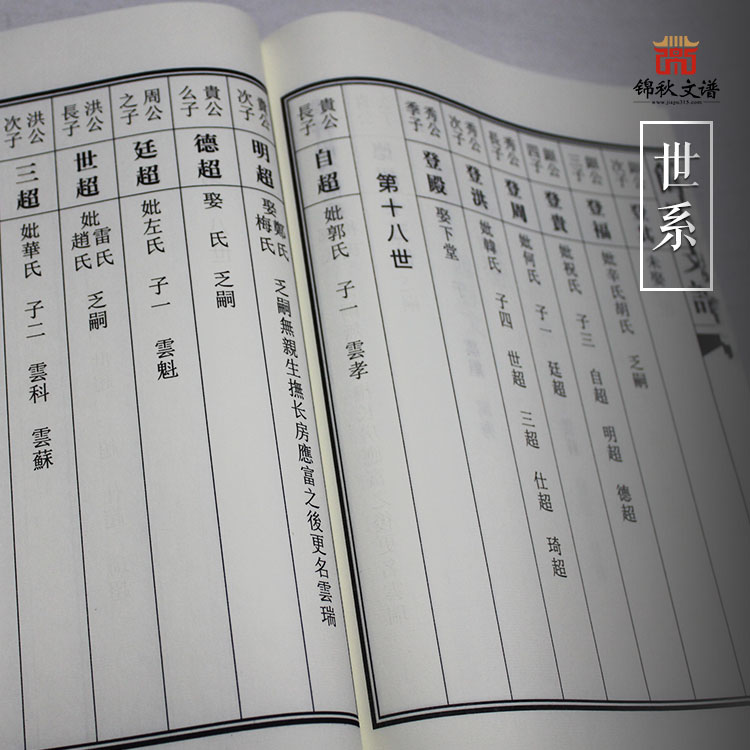 锦秋文谱
www.jiapu315.com
世系
次子 登 未娶
顯公三子 登福 妣辛氏胡氏 乏嗣
顯公四子 登貴 妣祝氏 子三 自超 明超 德超
秀公長子 登周 妣何氏 子一 廷超
秀公次子 登洪 妣韓氏 子四 世超 三超 仕超 琦超
秀公季子 登殿 娶下堂
第十八世
貴公長子 自超 妣郭氏 子一 雲孝
貴公次子 明超 娶鄭氏梅氏 乏嗣無親生撫长房應富之後更名雲瑞
貴公么子 德超 娶 氏 乏嗣
周公之子 廷超 妣左氏 子一 雲魁
洪公長子 世超 妣雷氏趙氏 乏嗣
洪公次子 三超 妣華氏 子二 雲科 雲蘇